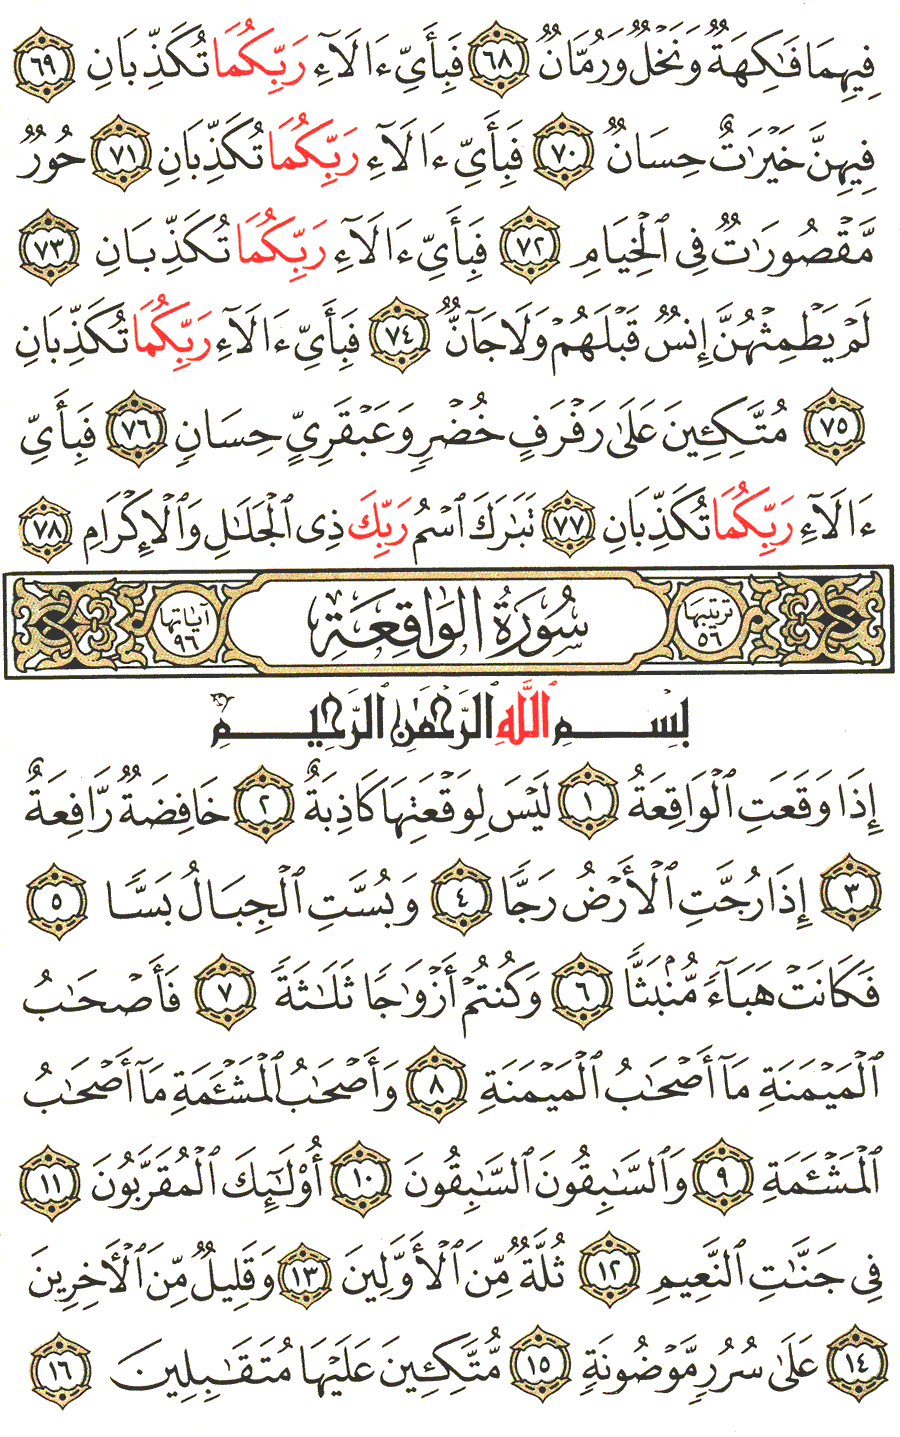 فِيهِمَا فَٰكِهَةٌ وَنَخْلٌ وَرُمَّانٌ ٦٨ فَبِأَيِّ ءَالَآءِ رَبِّكُمَا تُكَذِّبَانِ ٦٩
فِيهِنَّ خَيْرَٰتٌ حِسَانٌ ٧٠ فَبِأَيِّ ءَالَآءِ رَبِّكُمَا تُكَذِّبَانِ ٧١ حُورٌ
مَّقْصُورَٰتٌ فِى ٱلْخِيَامِ ٧٢ فَبِأَيِّ ءَالَآءِ رَبِّكُمَا تُكَذِّبَانِ ٧٣
لَمْ يَطْمِثْهُنَّ إِنسٌ قَبْلَهُمْ وَلَا جَآنٌّ ٧٤ فَبِأَيِّ ءَالَآءِ رَبِّكُمَا تُكَذِّبَانِ
٧٥ مُتَّكِـِٔينَ عَلَىٰ رَفْرَفٍ خُضْرٍ وَعَبْقَرِىٍّ حِسَانٍ ٧٦ فَبِأَيِّ
ءَالَآءِ رَبِّكُمَا تُكَذِّبَانِ ٧٧ تَبَٰرَكَ ٱسْمُ رَبِّكَ ذِى ٱلْجَلَٰلِ وَٱلْإِكْرَامِ ٧٨
ترتيبها ٥٦ سُورَةُ الوَاقِعَةِ آياتها ٩٦
بِسْمِ ٱللَّهِ ٱلرَّحْمَٰنِ ٱلرَّحِيمِ
إِذَا وَقَعَتِ ٱلْوَاقِعَةُ ١ لَيْسَ لِوَقْعَتِهَا كَاذِبَةٌ ٢ خَافِضَةٌ رَّافِعَةٌ
٣ إِذَا رُجَّتِ ٱلْأَرْضُ رَجًّا ٤ وَبُسَّتِ ٱلْجِبَالُ بَسًّا ٥
فَكَانَتْ هَبَآءً مُّنۢبَثًّا ٦ وَكُنتُمْ أَزْوَٰجًا ثَلَٰثَةً ٧ فَأَصْحَٰبُ
ٱلْمَيْمَنَةِ مَآ أَصْحَٰبُ ٱلْمَيْمَنَةِ ٨ وَأَصْحَٰبُ ٱلْمَشْـَٔمَةِ مَآ أَصْحَٰبُ
ٱلْمَشْـَٔمَةِ ٩ وَٱلسَّٰبِقُونَ ٱلسَّٰبِقُونَ ١٠ أُو۟لَٰٓئِكَ ٱلْمُقَرَّبُونَ ١١
فِى جَنَّٰتِ ٱلنَّعِيمِ ١٢ ثُلَّةٌ مِّنَ ٱلْأَوَّلِينَ ١٣ وَقَلِيلٌ مِّنَ ٱلْـَٔاخِرِينَ
١٤ عَلَىٰ سُرُرٍ مَّوْضُونَةٍ ١٥ مُّتَّكِـِٔينَ عَلَيْهَا مُتَقَٰبِلِينَ ١٦